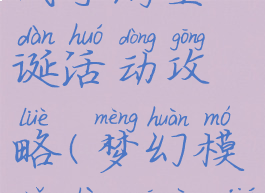 dàn huó dòng gōng
诞活动攻
lüè mèng huàn mó
略(梦幻模